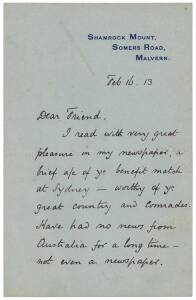 SHAMROCK MOUNT,
SOMERS ROAD,
MALVERN.
Feb 16. 13
Dear Friend,
I read with very great
pleasure in my newspaper, a
brief a/c of yr benefit match
at Sydney — worthy of yr
great country and comrades.
Have had no news from
Australia for a long time —
not even a newspaper.